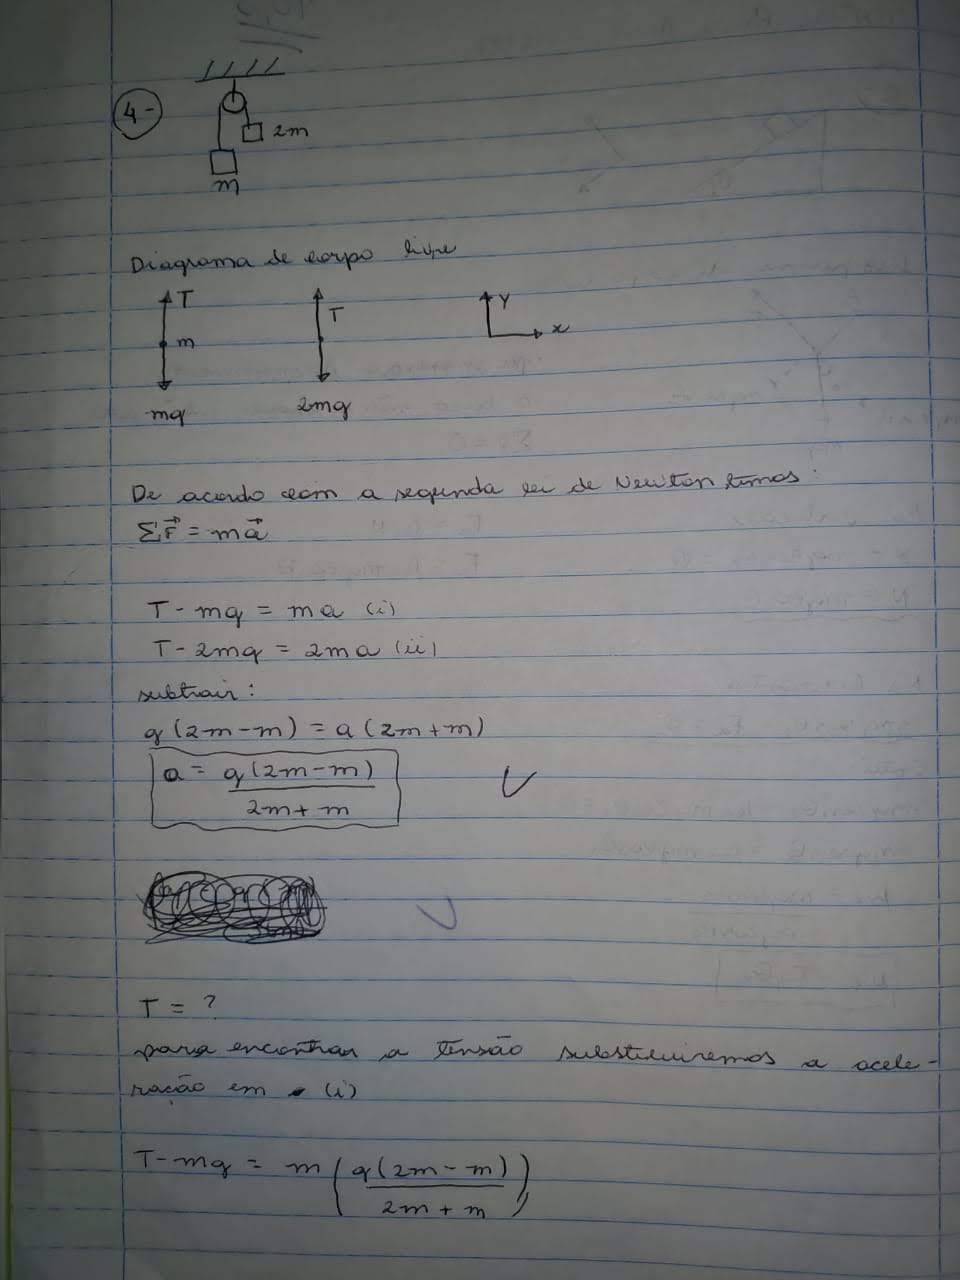 4-
2m
m
Diagrama de corpo livre
T T Y
m x
mg 2mg
De acordo com a segunda lei de Newton temos:
ΣF⃗ = ma⃗
T - mg = ma (i)
T - 2mg = 2ma (ii)
subtrair:
g(2m-m) = a(2m+m)
a = g(2m-m)
2m+m
T = ?
para encontrar a tensão substituiremos a acele-
ração em (i)
T-mg = m (g(2m-m)
2m+m)